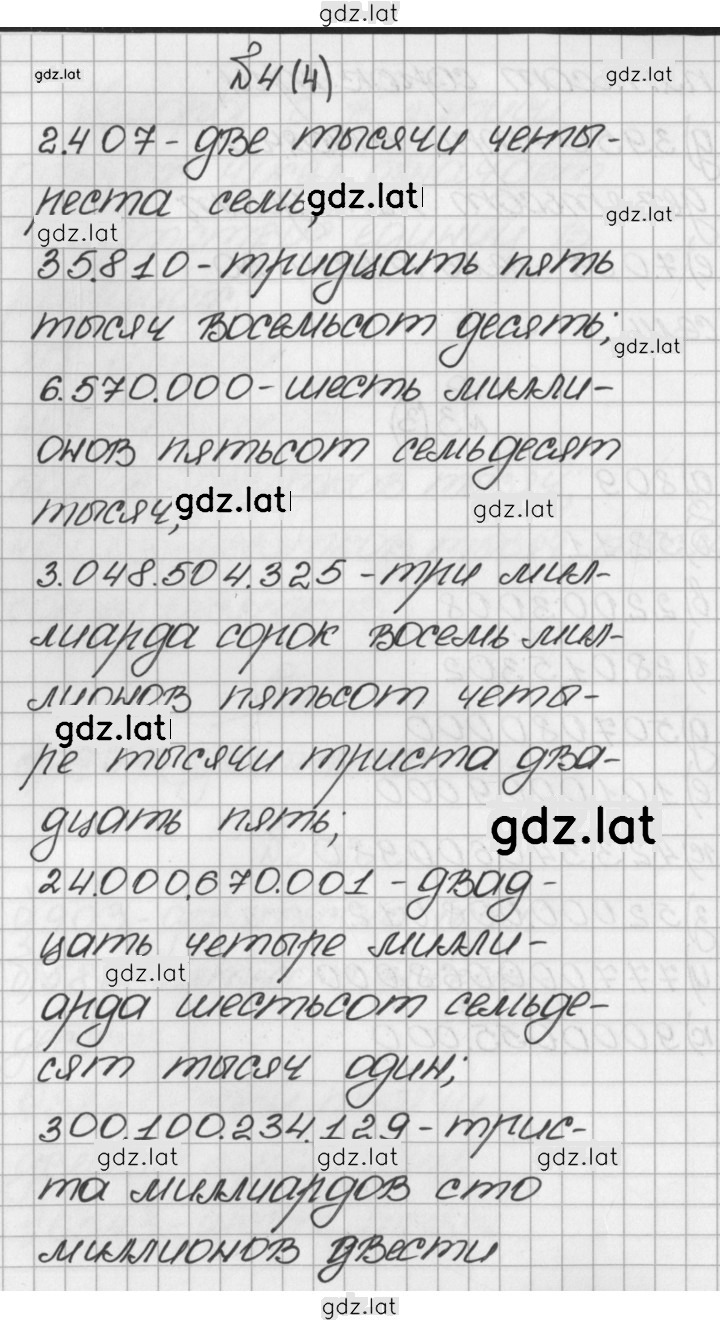 gdz.lat
gdz.lat №4(4) gdz.lat
2.407 - две тысячи четы-
реста семь; gdz.lat
gdz.lat gdz.lat
35.810 - тридцать пять
тысяч восемьсот десять;
gdz.lat
6.570.000 - шесть милли-
онов пятьсот семьдесят
тысяч; gdz.lat gdz.lat
3.048.504.325 - три мил-
лиарда сорок восемь мил-
лионов пятьсот четы-
gdz.lat
ре тысячи триста два-
дцать пять; gdz.lat
24.000.670.001 - двад-
цать четыре милли-
gdz.lat
арда шестьсот семьде-
сят тысяч один;
300.100.234.129 - трис-
gdz.lat gdz.lat gdz.lat
та миллиардов сто
миллионов двести
gdz.lat